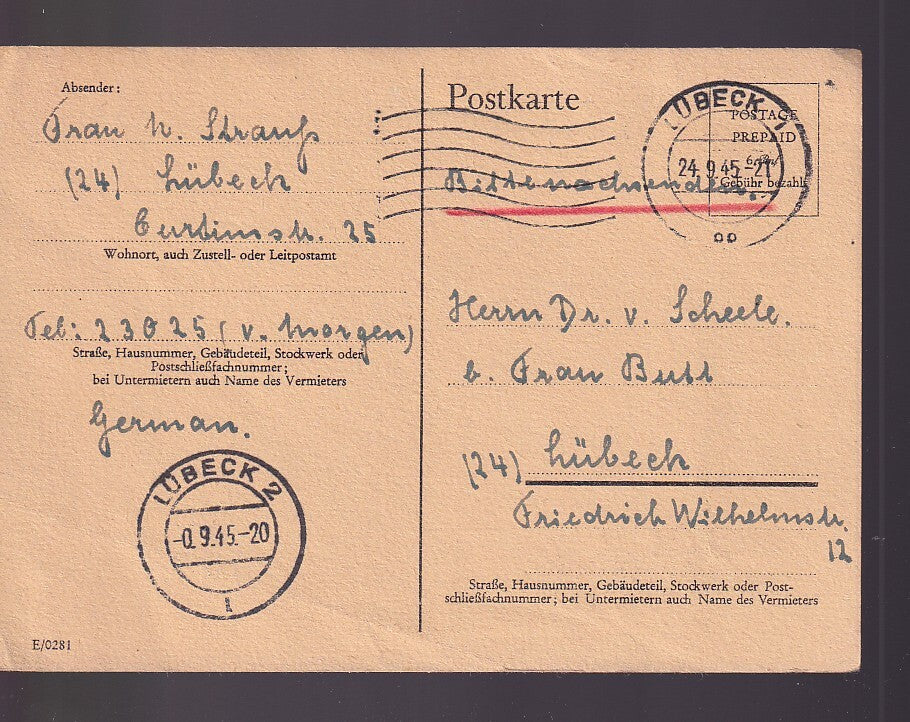 Absender:
Frau h. Strauß
(24) Lübeck
Curtiusstr. 25
Wohnort, auch Zustell- oder Leitpostamt
Tel: 23025 (v. morgen)
Straße, Hausnummer, Gebäudeteil, Stockwerk oder
Postschließfachnummer;
bei Untermietern auch Name des Vermieters
German.
LÜBECK 2
-0.9.45.-20
1
E/0281
Postkarte
LÜBECK 1
24.9.45-21
POSTAGE
PREPAID
Gebühr bezahlt
Bitte nachsenden.
Herrn Dr. v. Scheele.
b. Frau Butt
(24) Lübeck
Friedrich Wilhelmstr.
12
Straße, Hausnummer, Gebäudeteil, Stockwerk oder Post-
schließfachnummer; bei Untermietern auch Name des Vermieters